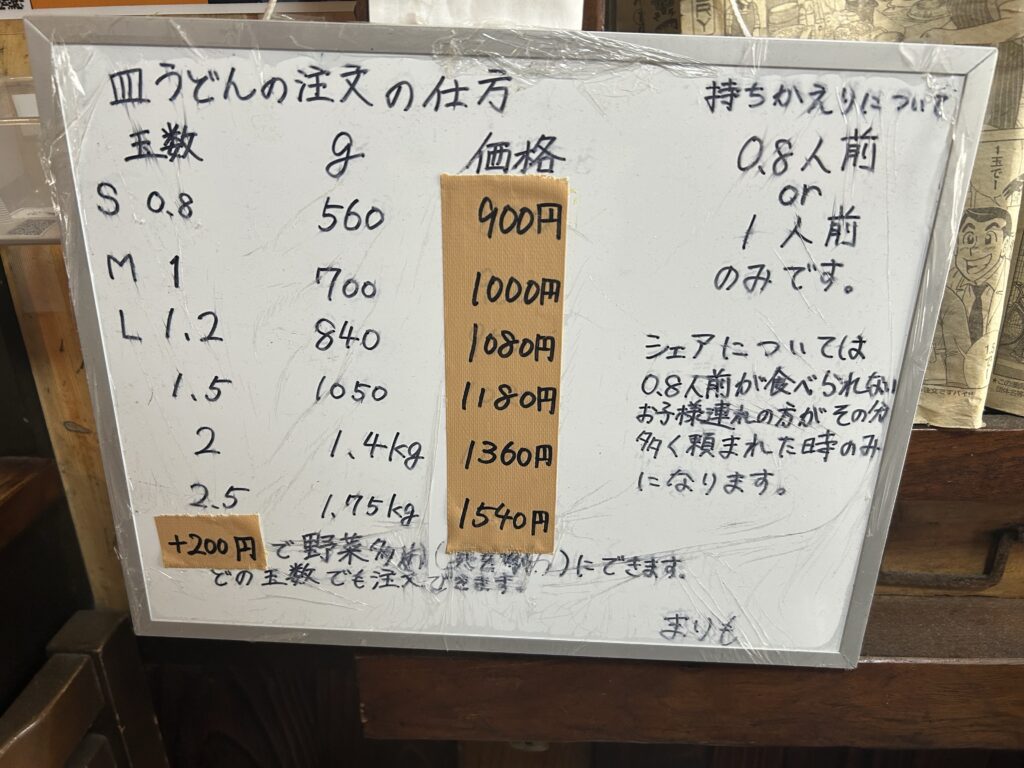 皿うどんの注文の仕方
玉数 g 価格
S 0.8 560 900円
M 1 700 1000円
L 1.2 840 1080円
1.5 1050 1180円
2 1.4kg 1360円
2.5 1.75kg 1540円
+200円 で野菜多め( )にできます。
どの玉数でも注文できます。
持ちかえりについて
0.8人前
or
1人前
のみです。
シェアについては
0.8人前が食べられない
お子様連れの方がその分
多く頼まれた時のみ
になります。
まりも